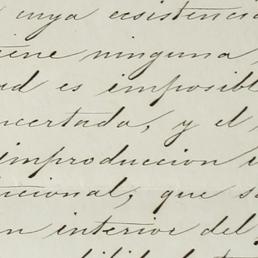 cuya ecsistencia
iene ninguna,
ad es imposible
ncertada, y el
improduccion
ncional, que s
n interior del